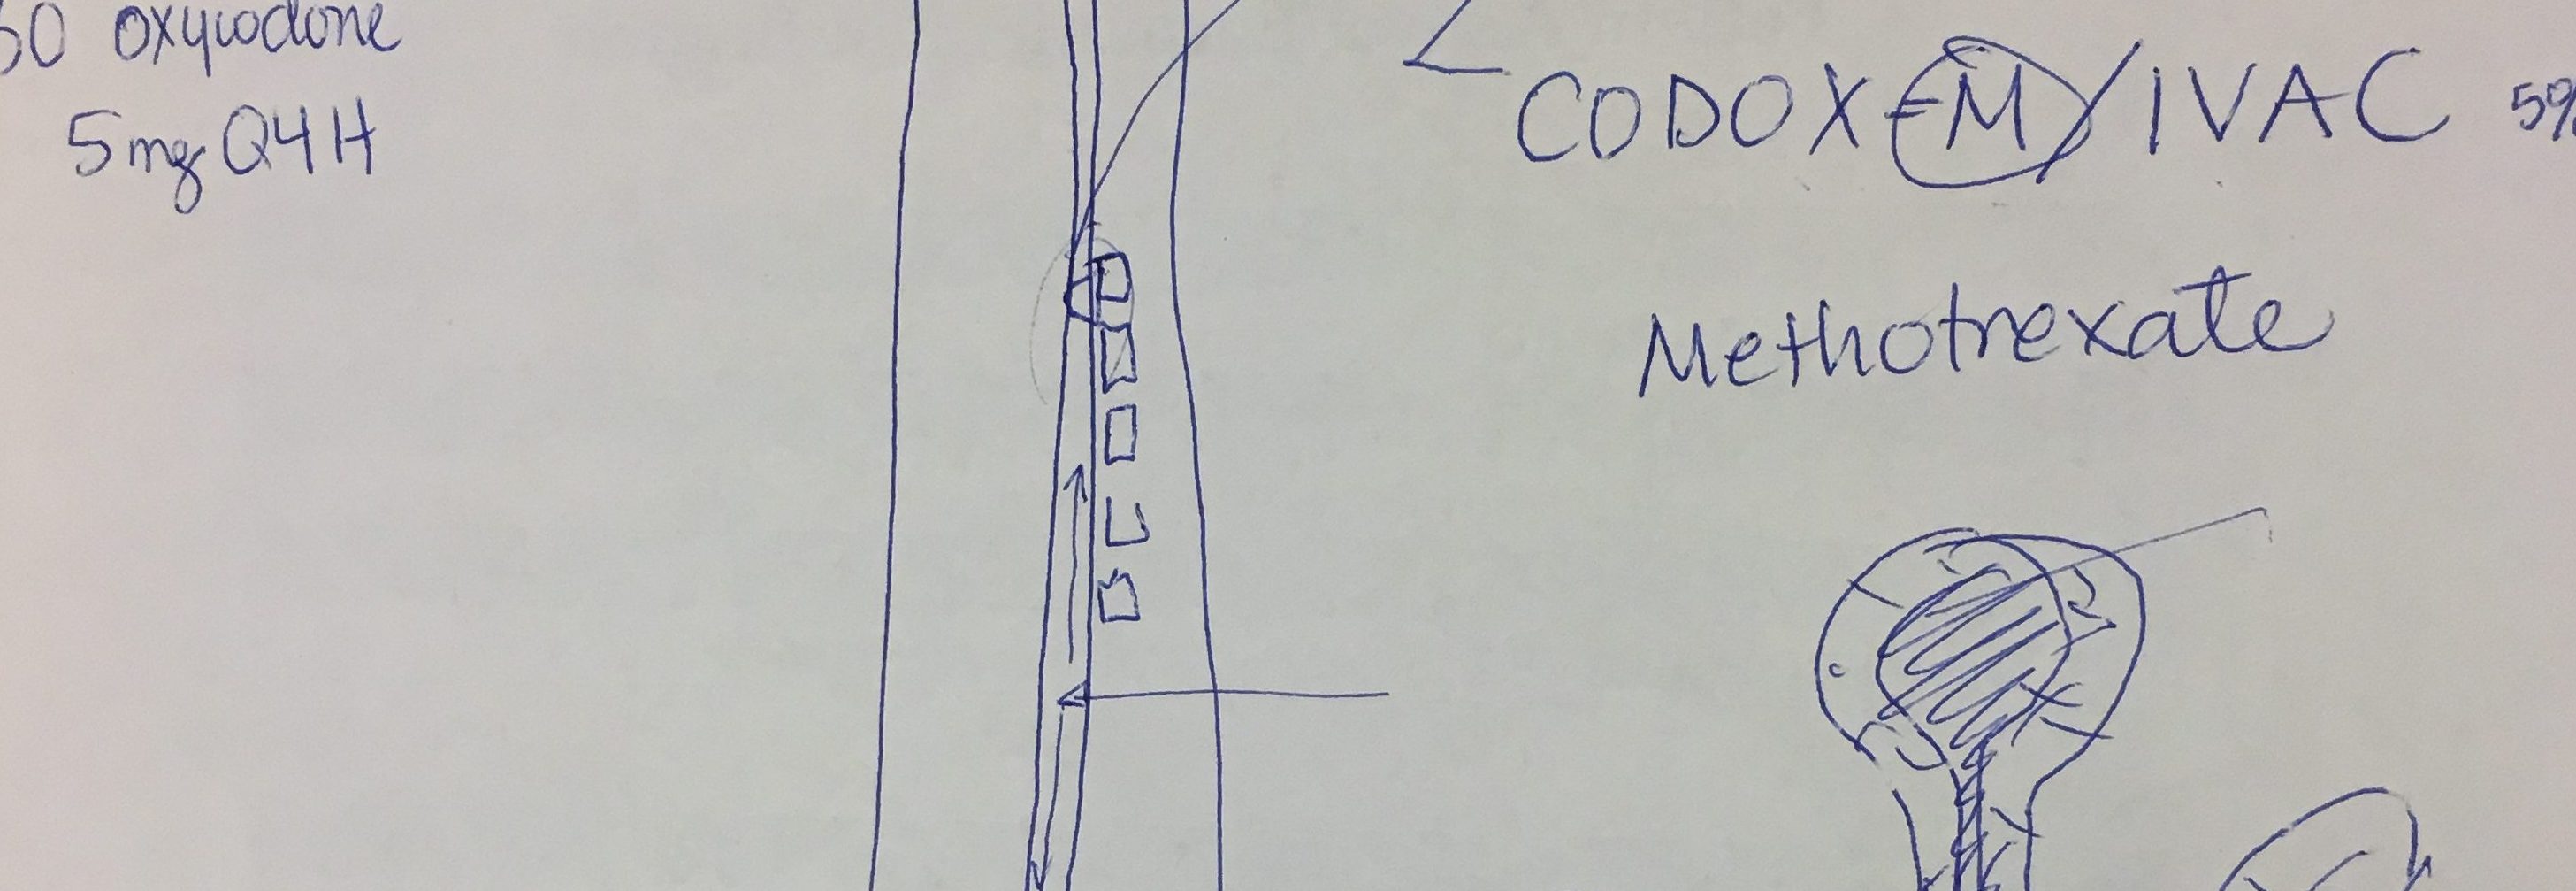 oxycodone
5mg Q4H
CODOX-M/IVAC 5%
Methotrexate